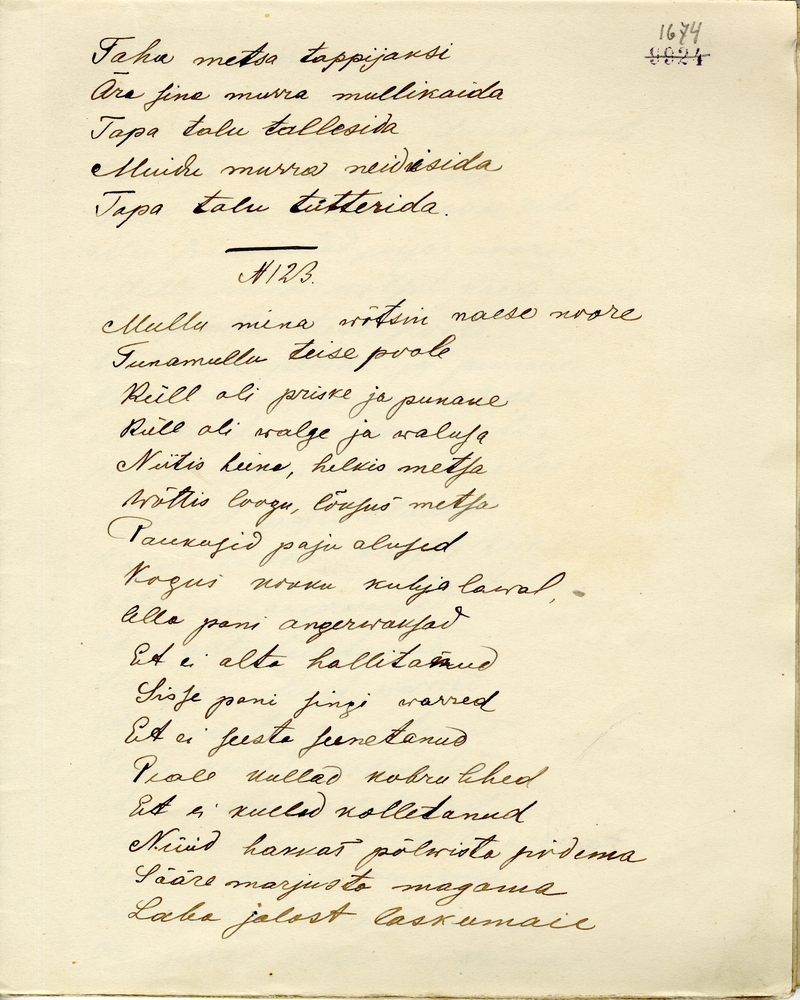 1674
9924
Taha metsa tappijaksi
Ära sina murra mullikaida
Tapa talu tallesida
Muidu murra neidisida
Tapa talu tütterida.
N 123.
Mullu mina wõtsin naese noore
Tunamullu teise poole
Küll oli priske ja punane
Küll oli walge ja walusa
Niitis heina, helkis metsa
Wõttis loogu, lõksus metsa
Paukusid paju alused
Kogus kokku kuhja lawal,
Alla pani angerwaksad
Et ei alta hallitanud
Sisse pani singi warred
Et ei seesta seenetanud
Peale kullad kobrulehed
Et ei kullad kolletanud
Nüüd hakkas põlwista põdema
Sääre marjusta magama
Laba jalost laskumaie